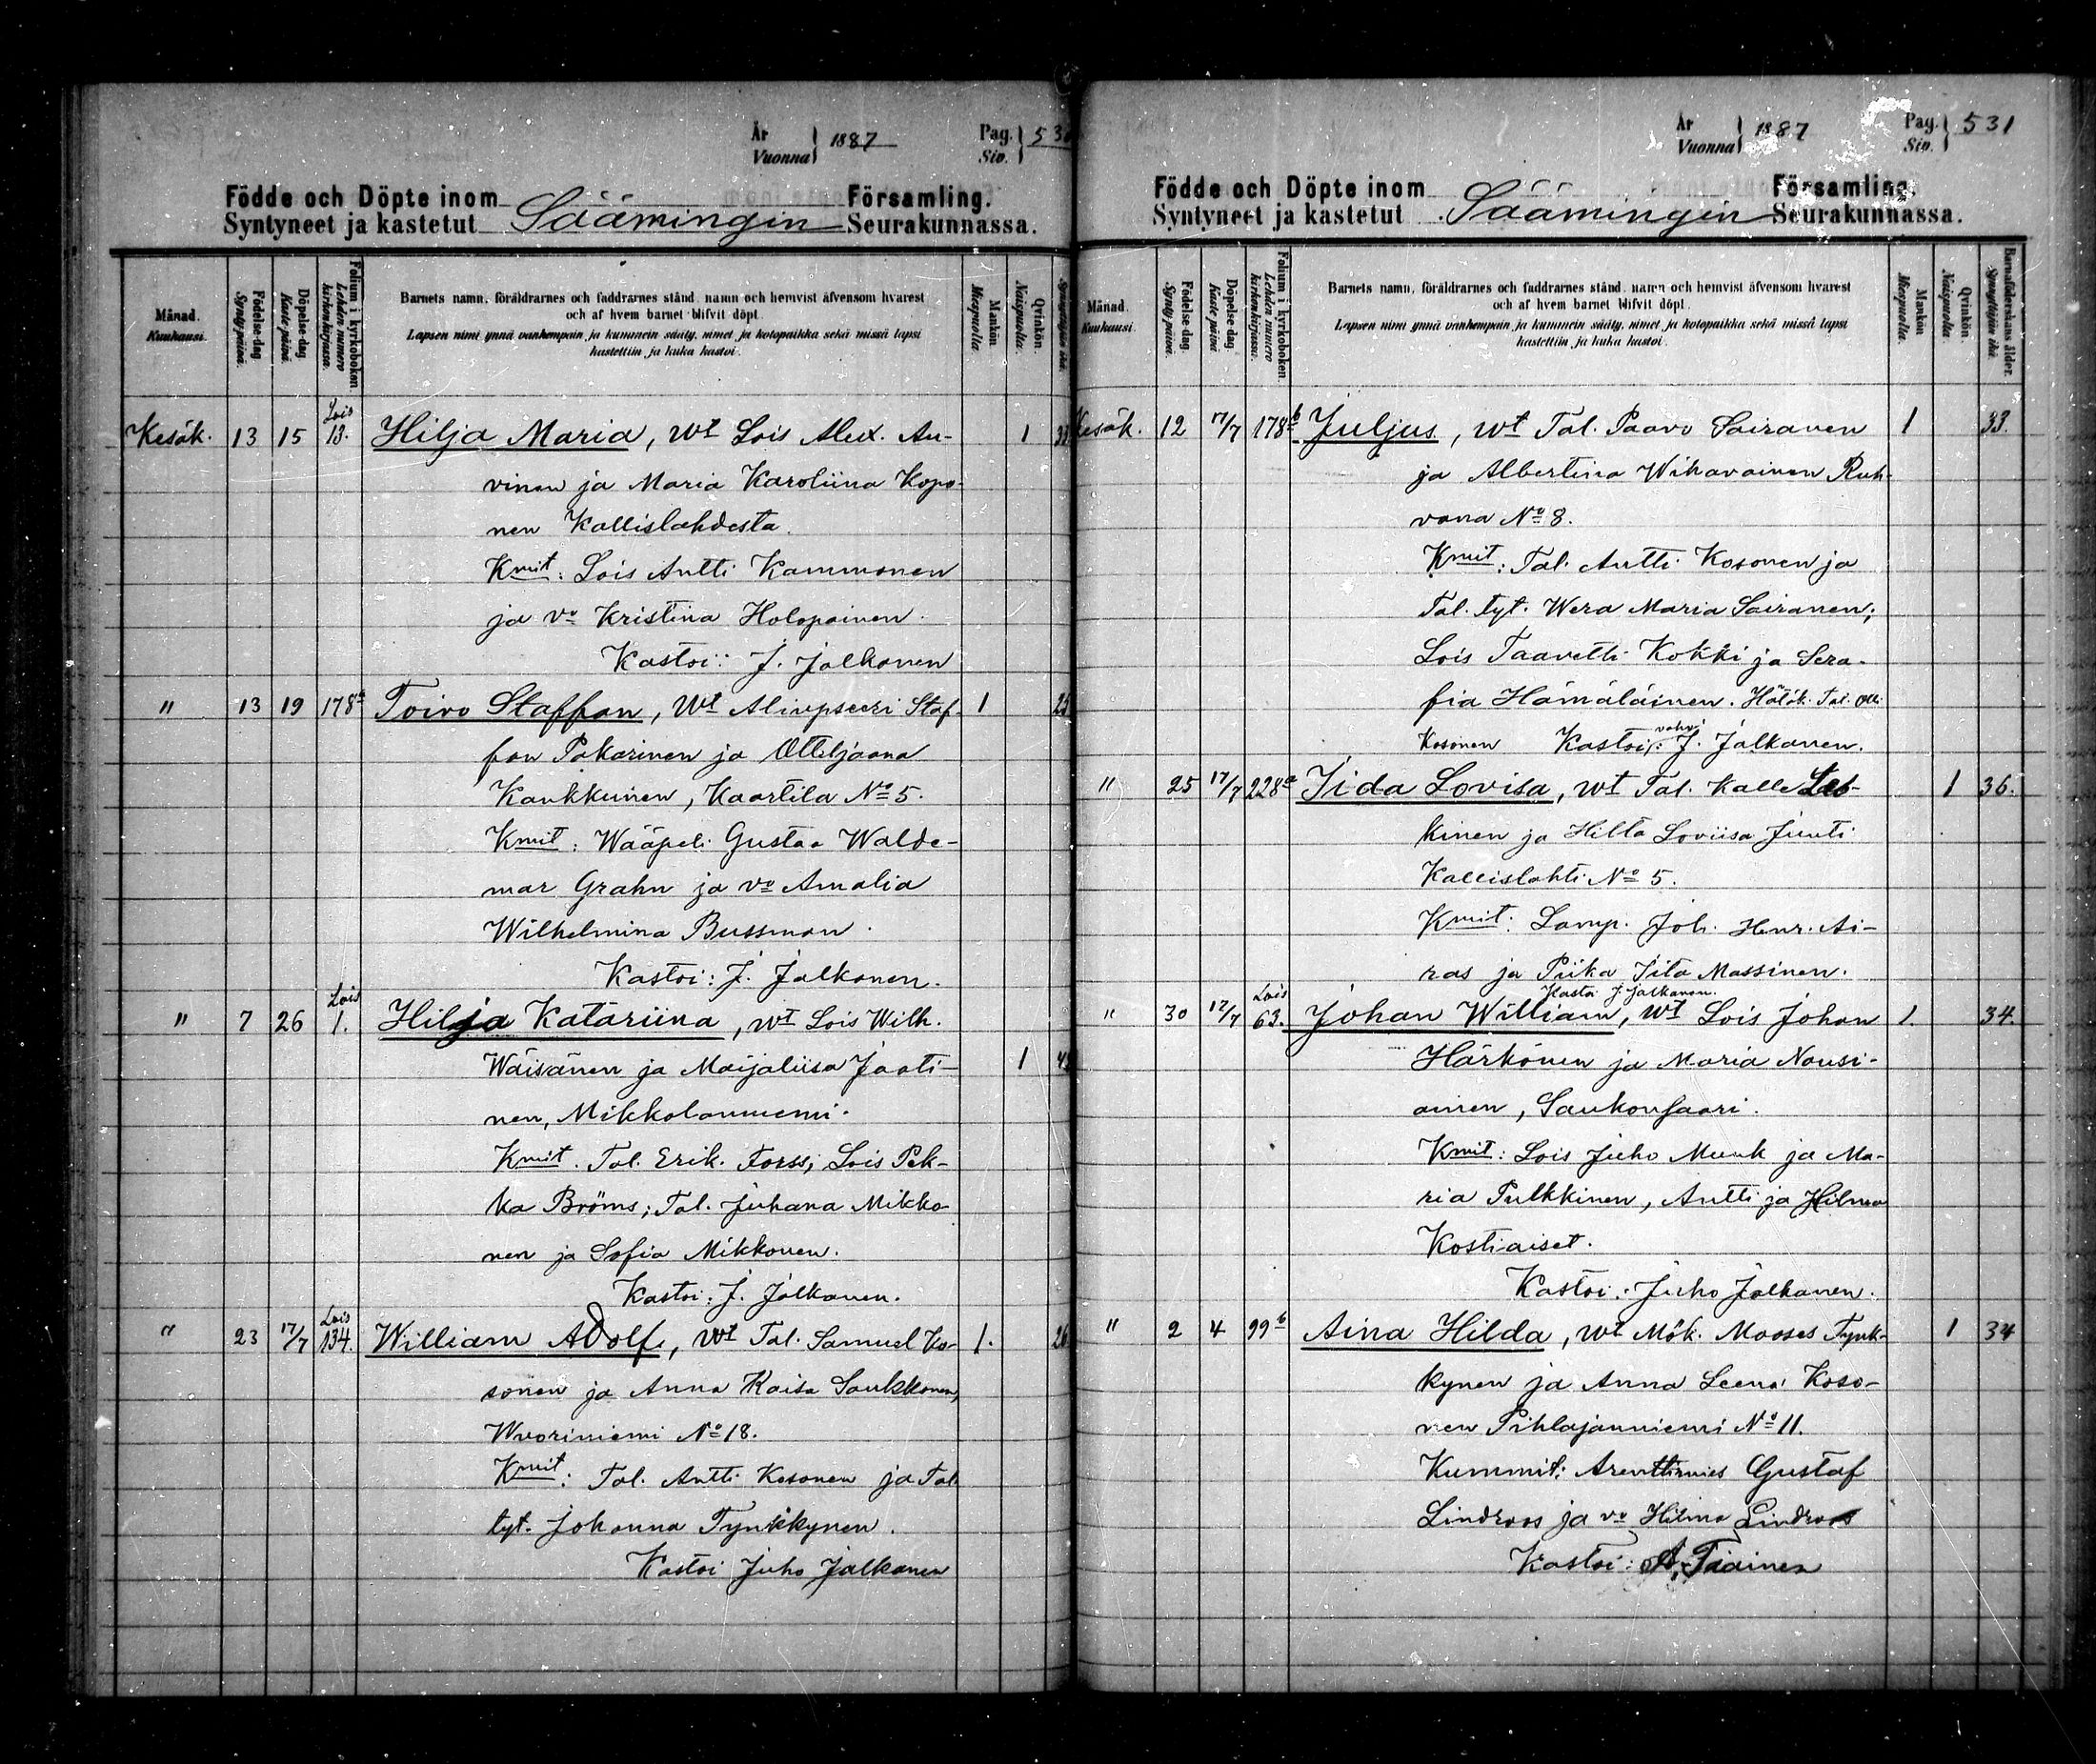 År
Vuonna } 1887
Pag.
Siv. } 530
Födde och Döpte inom Församling.
Syntyneet ja kastetut Säämingin Seurakunnassa.
Månad.
Kuukausi.
Födelse-dag.
Synty-päivä.
Döpelse-dag
Kaste-päivä.
Folium i kyrkoboken.
Lehden numero
kirkonkirjassa.
Barnets namn, föräldrarnes och faddrarnes stånd, namn och hemvist äfvensom hvarest
och af hvem barnet blifvit döpt.
Lapsen nimi ynnä vanhempain ja kummein sääty, nimet ja kotopaikka sekä missä lapsi
kastettiin ja kuka kastoi.
Mankön.
Miespuolta.
Qvinkön.
Naispuolta.
Lois
Kesäk. 13 15 13. Hilja Maria, wt Lois Alex. Au- 1
vinen ja Maria Karoliina Kopo-
nen Kallislahdesta.
Kmit: Lois Antti Kammonen
ja vo Kristina Holopainen.
Kastoi: J. Jalkanen
" 13 19 178a Toivo Staffan, Wt Alivpseeri Staf- 1
fan Pakarinen ja Ottiljaana
Kaukkuinen, Kaartila No 5.
Kmit: Wääpeli Gustaa Walde-
mar Grahn ja vo Amalia
Wilhelmina Bussman.
Kastoi: J. Jalkanen.
Lois
" 7 26 1. Hilja Katariina, wt Lois Wilh.
Wäisänen ja Maijaliisa Jaati- 1
nen, Mikkolanniemi.
Kmit. Tal. Erik. Forss; Lois Pek-
ka Bröms; Tal. Juhana Mikko-
nen ja Sofia Mikkonen.
Kastoi: J. Jalkanen.
Lois
" 23 17/7 134. William Adolf, wt Tal. Samuel Ko- 1. 26
sonen ja Anna Kaisa Saukkonen,
Wuoriniemi No 18.
Kmit: Tal. Antti Kosonen ja Tal.
tyt. Johanna Tynkkynen.
Kastoi Juho Jalkanen
År
Vuonna } 1887
Pag.
Siv. } 531
Födde och Döpte inom Församling.
Syntyneet ja kastetut Säämingin Seurakunnassa.
Månad.
Kuukausi.
Födelse-dag.
Synty-päivä.
Döpelse-dag
Kaste-päivä
Folium i kyrkoboken.
Lehden numero
kirkonkirjassa.
Barnets namn, föräldrarnes och faddrarnes stånd, namn och hemvist äfvensom hvarest
och af hvem barnet blifvit döpt.
Lapsen nimi ynnä vanhempain ja kummein sääty, nimet ja kotopaikka sekä missä lapsi
kastettiin ja kuka kastoi.
Mankön
Miespuolta.
Qvinkön.
Naispuolta
Barnaföderskans ålder.
Synnyttäjän ikä.
Kesäk. 12 17/7 178b Juljus, wt Tal. Paavo Sairanen 1 33.
ja Albertina Wihavainen Ruh-
vana No 8.
Kmit: Tal. Antti Kosonen ja
Tal. tyt. Wera Maria Sairanen;
Lois Taavetti Kokki ja Sera-
fia Hämäläinen. Hätäk. Tal. Olli
Kosonen Kastoi: vahv. J. Jalkanen.
" 25 17/7 228a Iida Lovisa, wt Tal. Kalle 1 36.
kinen ja Hilta Loviisa Juuti
Kallislahti No 5.
Kmit: Lamp. Joh. Henr. Ai-
ras ja Piika Iita Massinen.
Kastoi J. Jalkanen.
Lois
" 30 17/7 63. Johan William, wt Lois Johan 1. 34.
Härkönen ja Maria Nousi-
ainen, Saukonsaari.
Kmit: Lois Juho Munk ja Ma-
ria Pulkkinen, Antti ja Hilma
Kostiaiset.
Kastoi: Juho Jalkanen.
" 2 4 99b Aina Hilda, wt Mök. Mooses Tynk- 1 34
kynen ja Anna Leena Koso-
nen Pihlajanniemi No 11.
Kummit: Arenttimies Gustaf
Lindroos ja vo Hilma Lindroos
Kastoi: A. Tiainen